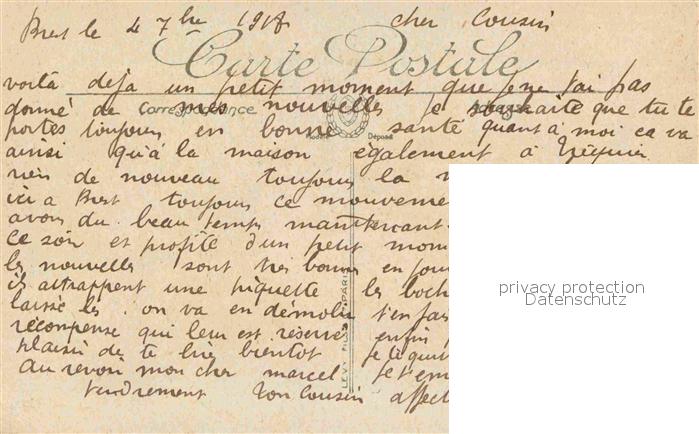 Brest le 4 7bre 1918 cher Cousin
Carte Postale
voilà deja un petit moment que je ne t'ai pas
donné de mes nouvelles je souhaite que tu te
Correspondance
portes toujours en bonne santé quant à moi ca va
Modèle Déposé
ainsi qu'à la maison également à
rien de nouveau toujours la
ici a Brest toujours ce mouveme
avons du beau temps maintenant
ce soir et profite d'un petit mom
les nouvelles sont très bonnes en
ils attrappent une piquette les boch
laissé les on va en démolir t'en fais
récompense qui leur est réservé enfin
plaisir de te lire bientot je te quit
au revoir mon cher marcel je t'em
tendrement ton Cousin affect
LEVY FILS PARIS
privacy protection
Datenschutz